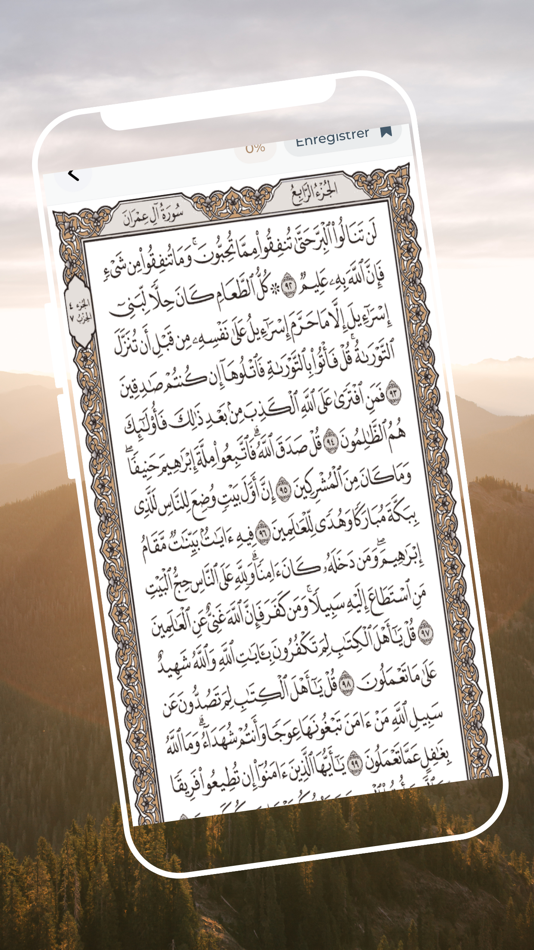 0%
Enregistrer
سُورَةُ آلِ عِمْرَانَ
الجُزْءُ الرَّابِعُ
الجزء ٤
الحزب ٧
لَن تَنَالُوا۟ ٱلْبِرَّ حَتَّىٰ تُنفِقُوا۟ مِمَّا تُحِبُّونَ ۚ وَمَا تُنفِقُوا۟ مِن شَىْءٍ
فَإِنَّ ٱللَّهَ بِهِۦ عَلِيمٌ ٩٢ ۞ كُلُّ ٱلطَّعَامِ كَانَ حِلًّا لِّبَنِىٓ
إِسْرَٰٓءِيلَ إِلَّا مَا حَرَّمَ إِسْرَٰٓءِيلُ عَلَىٰ نَفْسِهِۦ مِن قَبْلِ أَن تُنَزَّلَ
ٱلتَّوْرَىٰةُ ۗ قُلْ فَأْتُوا۟ بِٱلتَّوْرَىٰةِ فَٱتْلُوهَآ إِن كُنتُمْ صَٰدِقِينَ
٩٣ فَمَنِ ٱفْتَرَىٰ عَلَى ٱللَّهِ ٱلْكَذِبَ مِنۢ بَعْدِ ذَٰلِكَ فَأُو۟لَٰٓئِكَ
هُمُ ٱلظَّٰلِمُونَ ٩٤ قُلْ صَدَقَ ٱللَّهُ ۗ فَٱتَّبِعُوا۟ مِلَّةَ إِبْرَٰهِيمَ حَنِيفًا
وَمَا كَانَ مِنَ ٱلْمُشْرِكِينَ ٩٥ إِنَّ أَوَّلَ بَيْتٍ وُضِعَ لِلنَّاسِ لَلَّذِى
بِبَكَّةَ مُبَارَكًا وَهُدًى لِّلْعَٰلَمِينَ ٩٦ فِيهِ ءَايَٰتٌۢ بَيِّنَٰتٌ مَّقَامُ
إِبْرَٰهِيمَ ۖ وَمَن دَخَلَهُۥ كَانَ ءَامِنًا ۗ وَلِلَّهِ عَلَى ٱلنَّاسِ حِجُّ ٱلْبَيْتِ
مَنِ ٱسْتَطَاعَ إِلَيْهِ سَبِيلًا ۚ وَمَن كَفَرَ فَإِنَّ ٱللَّهَ غَنِىٌّ عَنِ ٱلْعَٰلَمِينَ
٩٧ قُلْ يَٰٓأَهْلَ ٱلْكِتَٰبِ لِمَ تَكْفُرُونَ بِـَٔايَٰتِ ٱللَّهِ وَٱللَّهُ شَهِيدٌ
عَلَىٰ مَا تَعْمَلُونَ ٩٨ قُلْ يَٰٓأَهْلَ ٱلْكِتَٰبِ لِمَ تَصُدُّونَ عَن
سَبِيلِ ٱللَّهِ مَنْ ءَامَنَ تَبْغُونَهَا عِوَجًا وَأَنتُمْ شُهَدَآءُ ۗ وَمَا ٱللَّهُ
بِغَٰفِلٍ عَمَّا تَعْمَلُونَ ٩٩ يَٰٓأَيُّهَا ٱلَّذِينَ ءَامَنُوٓا۟ إِن تُطِيعُوا۟ فَرِيقًا